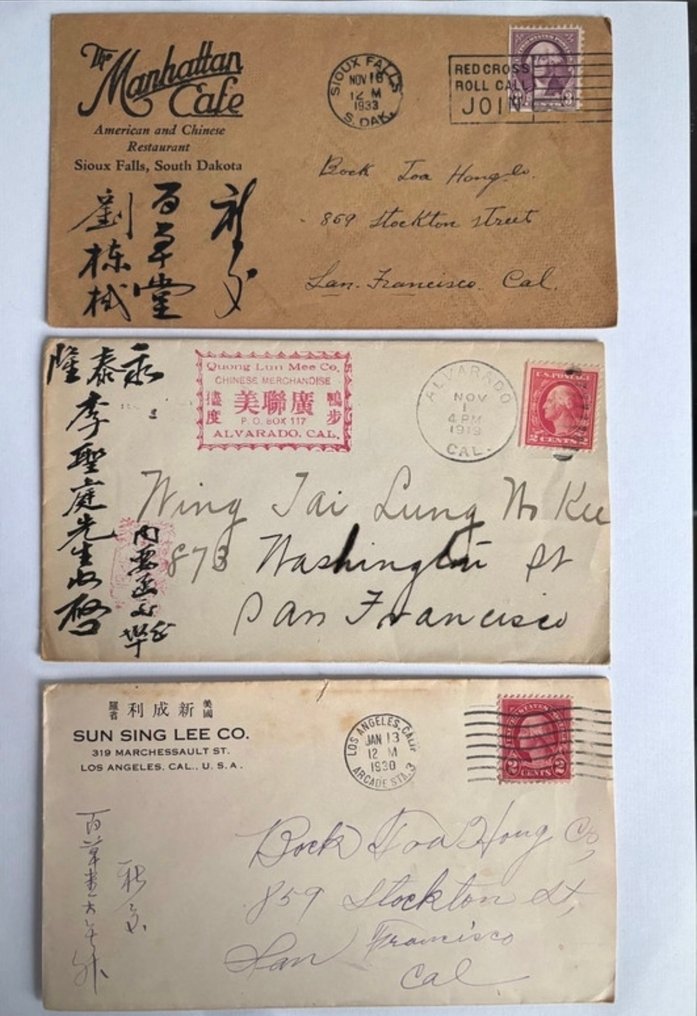 The
Manhattan
Cafe
American and Chinese
Restaurant
Sioux Falls, South Dakota
SIOUX FALLS
NOV 18
12 M
1933
S. DAK.
RED CROSS
ROLL CALL
JOIN
3 3
Bock Toa Hong Co.
859 Stockton Street
San Francisco Cal.
百草堂
劉棟
永
泰
隆
李聖庭先生收啓
內要函
Quong Lun Mee Co.
CHINESE MERCHANDISE
廣聯美
P. O. BOX 117
ALVARADO, CAL.
鴨步
度
ALVARADO
NOV
1
4 PM
1913
CAL.
U.S. POSTAGE
2 CENTS 2
Wing Tai Lung W Kee
873 Washington St
San Francisco
美國
新成利
羅省
SUN SING LEE CO.
319 MARCHESSAULT ST.
LOS ANGELES, CAL., U. S. A.
LOS ANGELES, CALIF.
JAN 13
12 M
1930
ARCADE STA. 3
2 CENTS 2
百草堂
Bock Toa Hong Co,
859 Stockton St,
San Francisco
Cal